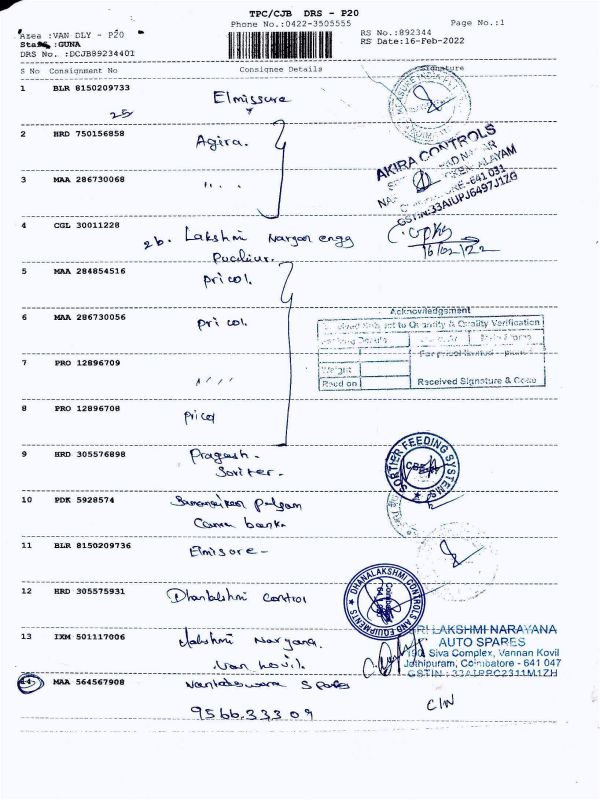 TPC/CJB DRS - P20
Phone No.:0422-3505555
Page No.:1
Area :VAN DLY - P20
:GUNA
DRS No. :DCJB89234401
RS No.:892344
RS Date:16-Feb-2022
S No Consignment No Consignee Details Signature
1 BLR 8150209733 Elmissure
25
2 HRD 750156858 Agira.
AKIRA CONTROLS
3 MAA 286730068 " "
-641 031
GSTIN:33AIUPJ6497J1ZG
4 CGL 30011228 26. Lakshmi Naryan engg
16/02/22
5 MAA 284854516 pricol.
6 MAA 286730056 pricol.
Acknowledgement
Received Subject to Quantity & Quality Verification
7 PRO 12896709 " "
Weight
Read on
Received Signature & Code
8 PRO 12896708 pricol
9 HRD 305576898 Pragash.
SORTIER FEEDING SYSTEMS
CBE
10 PDK 5928574
Canara bank
11 BLR 8150209736 Elmisore -
12 HRD 305575931 Dhanlakshmi Control
DHANALAKSHMI CONTROLS AND EQUIPMENTS
13 IXM 501117006 Lakshmi Naryana.
Van Kovil.
SRI LAKSHMI NARAYANA
AUTO SPARES
190, Siva Complex, Vannan Kovil
Jothipuram, Coimbatore - 641 047
GSTIN : 33AIRPC2311M1ZH
14 MAA 564567908 Spares
9566.33309
C/N